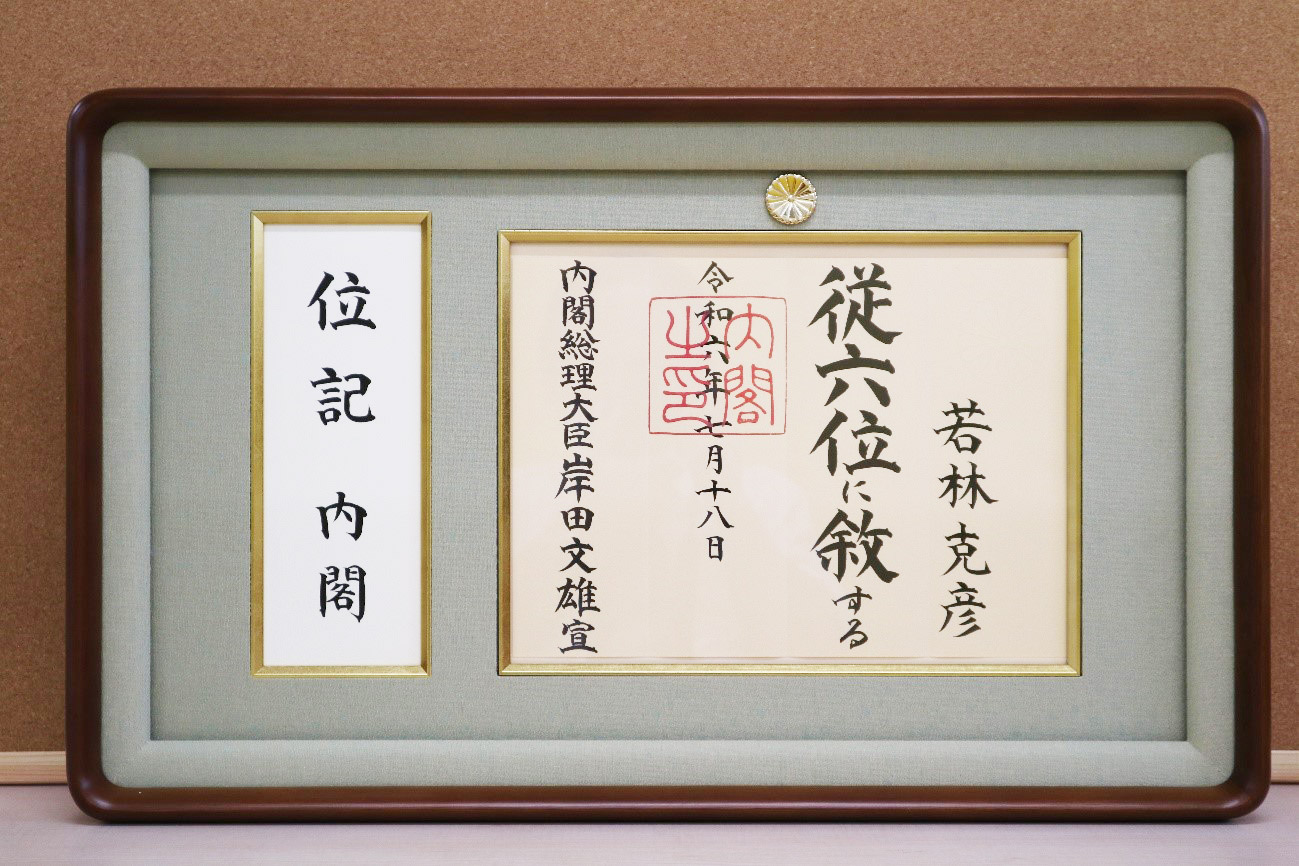 若林克彦
従六位に敘する
令和六年七月十八日
内閣之印
内閣総理大臣岸田文雄宣
位記 内閣